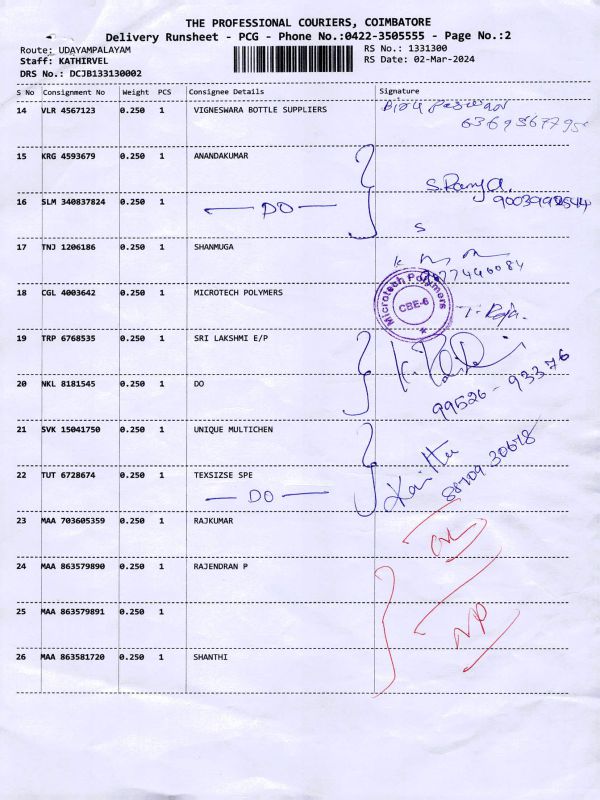 THE PROFESSIONAL COURIERS, COIMBATORE
Delivery Runsheet - PCG - Phone No.:0422-3505555 - Page No.:2
Route: UDAYAMPALAYAM RS No.: 1331300
Staff: KATHIRVEL RS Date: 02-Mar-2024
DRS No.: DCJB133130002
S No Consignment No Weight PCS Consignee Details Signature
14 VLR 4567123 0.250 1 VIGNESWARA BOTTLE SUPPLIERS
15 KRG 4593679 0.250 1 ANANDAKUMAR
S. Ramya.
16 SLM 340837824 0.250 1 — DO —
S
17 TNJ 1206186 0.250 1 SHANMUGA
18 CGL 4003642 0.250 1 MICROTECH POLYMERS
Microtech Polymers
CBE-6
T. Raja.
19 TRP 6768535 0.250 1 SRI LAKSHMI E/P
20 NKL 8181545 0.250 1 DO
99526-93376
21 SVK 15041750 0.250 1 UNIQUE MULTICHEN
22 TUT 6728674 0.250 1 TEXSIZSE SPE
— DO —
88709 30678
23 MAA 703605359 0.250 1 RAJKUMAR
24 MAA 863579890 0.250 1 RAJENDRAN P
25 MAA 863579891 0.250 1
NP
26 MAA 863581720 0.250 1 SHANTHI